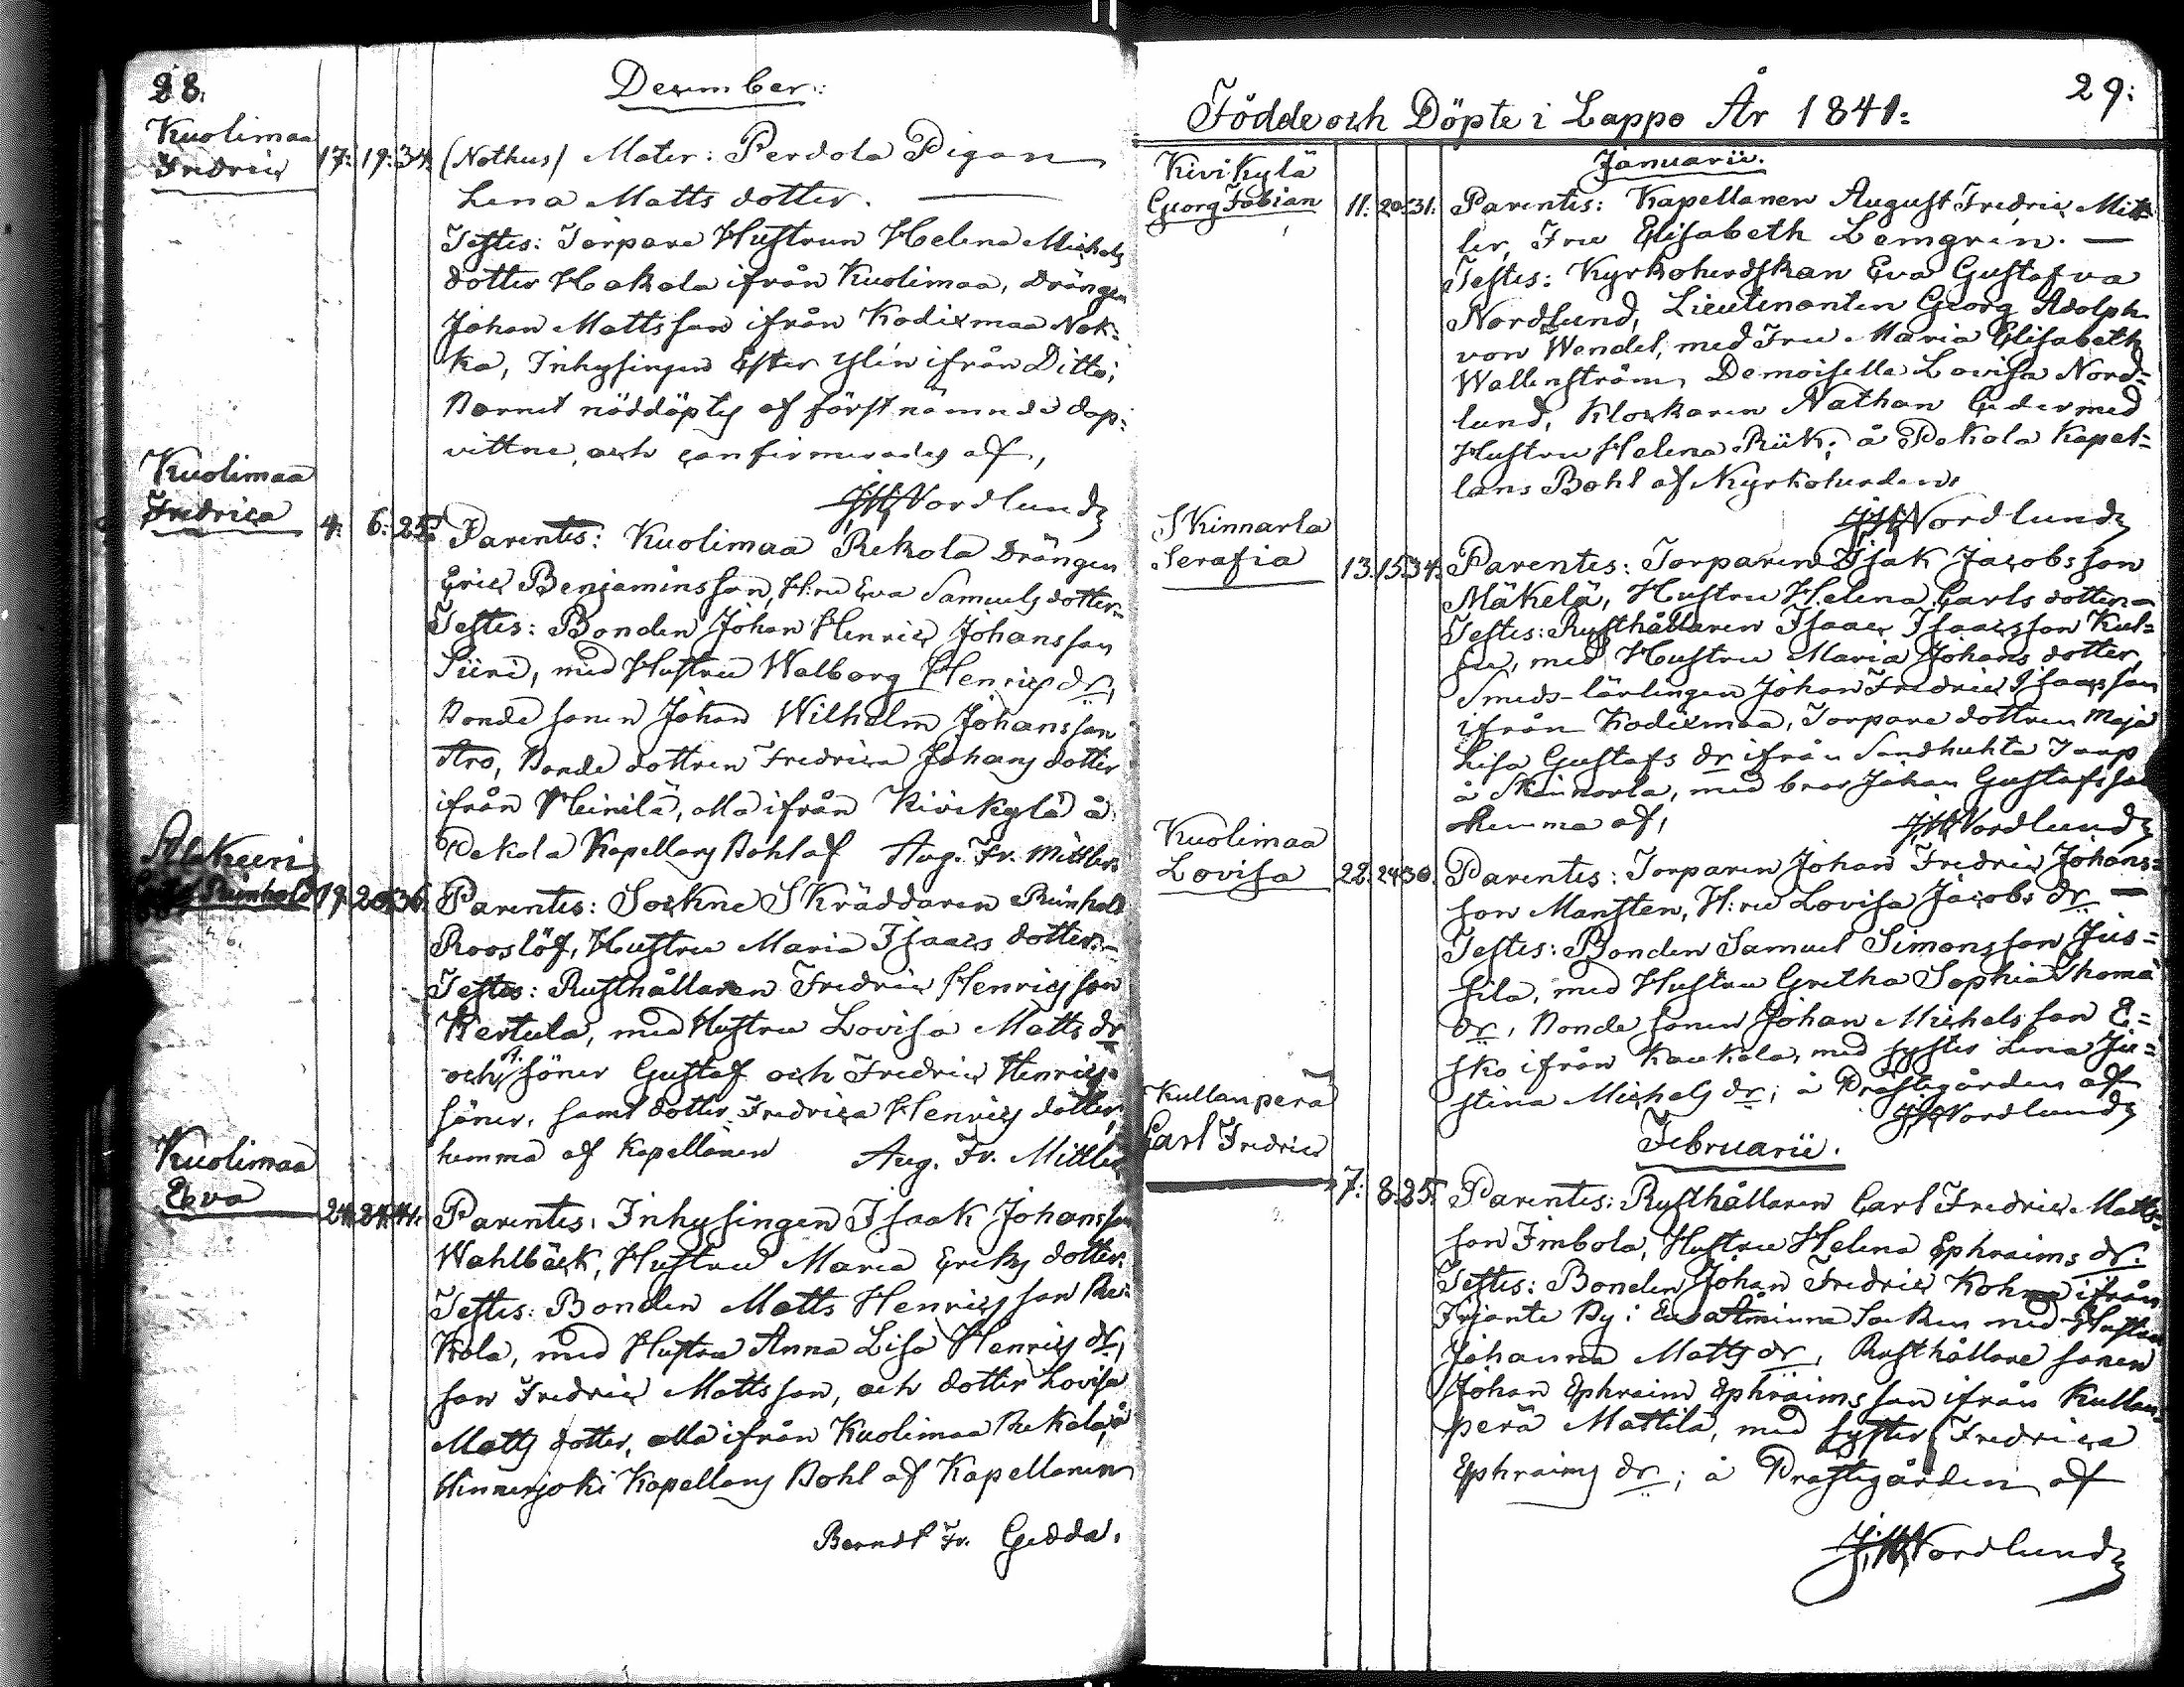 28.
December:
Kuolimaa
Fredric 17: 19: 34. (Nothus) Mater: Perdola Pigan
Lena Matts dotter.
Testes: Torpare Hustrun Helena Michels
dotter Hakala ifrån Kuolimaa, Drängen
Johan Mattsson ifrån Kodixmaa Nok=
ka, Inhysingen Ester Ylin ifrån Ditto;
Barnet nöddöptes af först nämnde dop=
vittne, och confirmerades af,
JHNordlund
Kuolimaa
Fredrica 4: 6: 25. Parentes: Kuolimaa Rekola Drängen
Eric Benjaminsson, H:ru Eva Samuels dotter.
Testes: Bonden Johan Henric Johansson
Siiri, med Hustru Walborg Henrics dr,
Bonde sonen Johan Wilhelm Johansson
Aro, Bonde dottren Fredrica Johans dotter
ifrån Heinilä, alla ifrån Kivikylä å
Pakola Kapellans Bohl af Aug. Fr. Mittler.
Alakieri
Reinhold 19. 20. 36. Parentes: Sockne Skräddaren Reinhold
Rooslöf, Hustru Maria Isaacs dotter.
Testes: Rusthållaren Fredric Henricsson
Kertula, med Hustru Lovisa Matts dr
och söner Gustaf och Fredric Henrics
söner, samt dotter Fredrica Henrics dotter;
hemma af Kapellanen Aug. Fr. Mittler
Kuolimaa
Eva 24. 24. 41. Parentes: Inhysingen Isaak Johansson
Wahlbäck, Hustru Maria Eriks dotter.
Testes: Bonden Matts Henricsson Re=
kola, med Hustru Anna Lisa Henrics dr,
son Fredric Mattsson, och dotter Lovisa
Matts dotter, alla ifrån Kuolimaa Rekola, å
Hinnerjoki Kapellans Bohl af Kapellanen
Berndt Fr. Gedda.
29:
Födde och Döpte i Lappo År 1841:
Januarii.
Kivikylä
Georg Fabian 11. 20. 31. Parentes: Kapellanen August Fredric Mitt=
ler, Fru Elisabeth Lemgren.
Testes: Kyrkoherdskan Eva Gustafva
Nordlund, Lieutenanten Georg Adolph
von Wendel, med Fru Maria Elisabeth
Wallenström, Demoiselle Lovisa Nord=
lund, Klockaren Nathan Ceder med
Hustru Helena Rük; å Pakola Kapel=
lans Bohl af Kyrkoherden
JHNordlund
Skinnarla
Serafia 13. 15. 34. Parentes: Torparen Isak Jacobsson
Mäkelä, Hustru Helena Carls dotter
Testes: Rusthållaren Isaac Isaacsson Kul=
su, med Hustru Maria Johans dotter,
Smeds-lärlingen Johan Fredric Isaacsson
ifrån Kodixmaa, Torpare dottren Maja
Lisa Gustafs dr ifrån Sandhuhta Torp
å Skinnarla, med bror Johan Gustafsson
hemma af, JHNordlund
Kuolimaa
Lovisa 22. 24. 30. Parentes: Torparen Johan Fredric Johans=
son Mansten, H:ru Lovisa Jacobs dr
Testes: Bonden Samuel Simonsson Jus=
sila, med Hustru Gretha Sophia Thoma
dr, Bonde sonen Johan Michelsson E=
sko ifrån Kaukola, med syster Lena Ju=
stina Michels dr; å Prästegården af
JHNordlund
Februarii.
Kullanperä
Carl Fredric
7. 8. 25. Parentes: Rusthållaren Carl Fredric Matts=
sonImbola, Hustru Helena Ephraims dr.
Testes: Bonden Johan Fredric Kohma ifrån
Irjante By i Eura Åminne Socken med Hustru
Johanna Matts dr, Rusthållare sonen
Johan Ephraim Ephraimsson ifrån Kullan=
perä Mattila, med syster Fredrica
Ephraims dr; å Prästegården af
JHNordlund